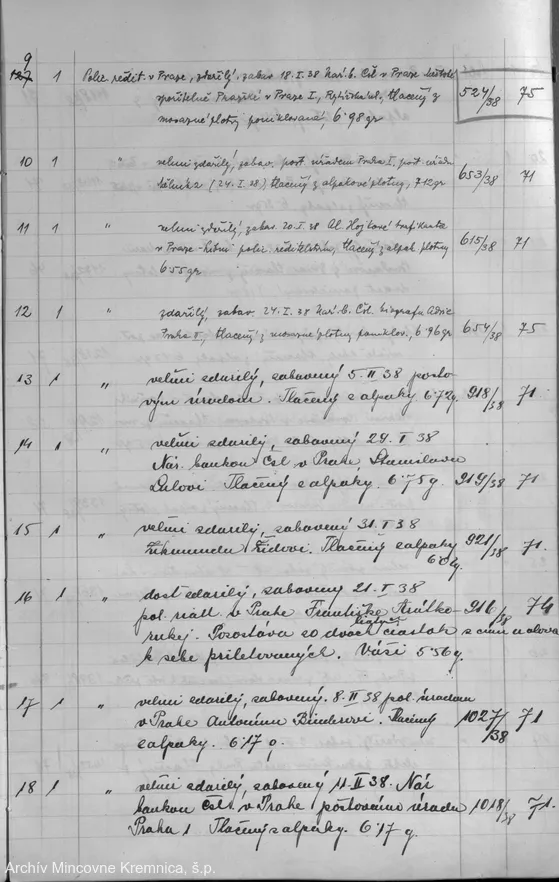 9
127 1 Polic. ředit. v Praze, zdařilý, zabav. 18.I.38 Nár. b. Čsl v Praze Městské
spořitelně Pražské v Praze I., Rytířská ul., tlačený z 524/38 75
mosazné plotny poniklovaná, 6·98 gr
10 1 " velmi zdařilý, zabav. pošt. úřadem Praha I, pošt.
(24.I.38), tlačený z alpakové plotny, 7·12 gr 653/38 71
11 1 " velmi zdařilý, zabav. 20.I.38 Al. Hojkové trafikantce
v Praze polic. ředitelstvím, tlačený z alpak. plotny 615/38 71
6·55 gr
12 1 " zdařilý, zabav. 24.I.38 Nár. b. Čsl. biografu Adria
Praha II, tlačený z mosazné plotny poniklov., 6·96 gr 654/38 75
13 1 " veľmi zdarilý, zabavený 5.II 38 pošto-
vým úradom. Tlačený z alpaky 6·72 g. 918/38 71
14 1 " veľmi zdarilý, zabavený 29.I 38
Nár. bankou Čsl. v Prahe Stanislavu
Lalovi Tlačený z alpaky. 6·75 g. 919/38 71
15 1 " veľmi zdarilý, zabavený 31.I 38
Zikmundu Židovi. Tlačený z alpaky 921/38 71.
g.
16 1 " dosť zdarilý, zabavený 21.I 38
pol. riad. v Prahe Františke Krátko- 916/38 74
rukej. Pozostáva zo dvoch častok z cínu a olova
k sebe priletovaných. Váži 5·56 g.
17 1 " veľmi zdarilý, zabavený 8.II 38 pol. úradom
v Prahe Antonínu Binderovi. Tlačený 1027/38 71
z alpaky. 6·17 g.
18 1 " veľmi zdarilý, zabavený 11.II 38. Nár
bankou Čsl. v Prahe poštovému úradu 1018/38 71.
Praha 1 Tlačený z alpaky. 6·17 g.
Archív Mincovne Kremnica, š.p.